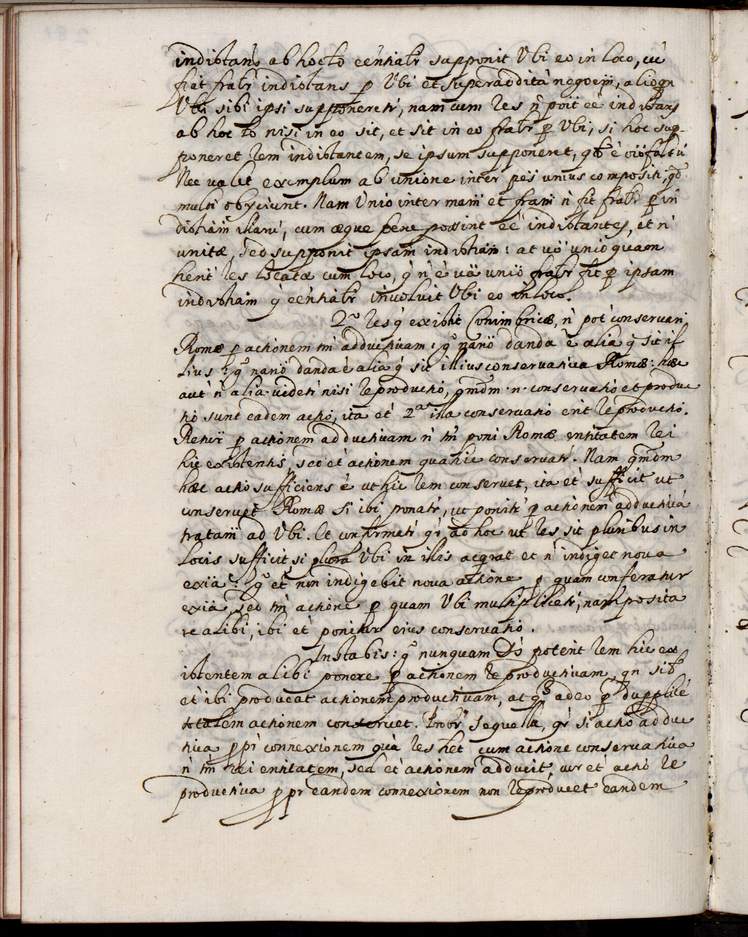 indistans ab hoc lo eentiatr supponit Vbi eo in loco, cu
fiat fratr indistans p Vbi et superaddita negoem, alioqn
Vbi sibi ipsi supponeretr, nam cum res n poit ee indistans
ab hoc lo nisi in eo sit, et sit in eo fratr p Vbi, si hoc sup-
poneret rem indistantem, se ipsum supponeret, qd e
Nec valet exemplum ab unione inter pes unius compositi, qd
multi obyciunt. Nam Unio inter mam et fram n fit fratr p in
distiam illaru, cum aeque bene possint ee indistantes, et n
unitae, sed supponit ipsam indistiam: at vo unio quam
hent res locatae cum loco, q n e va unio fratr fit p ipsam
indistiam q eentiatr involvit Vbi eo in loco.
2o res q existit Conimbricae, n pot conservari
Romae p actionem tm adductivam: qa nano danda e alia q sit il
lius: qa nano danda e alia q sit illius conservativa Romae: haec
aut n alia videtr nisi reproductio, qmdm n conservatio et produc
tio sunt eadem actio, ita et 2a illa conservatio erit reproductio.
Retur p actionem adductivam n tm poni Romae entitatem rei
hic existentis, sed et actionem qua hic conservatr. Nam qmdm
haec actio sufficiens e ut hic rem conservet, ita et sufficit ut
conservet Romae si ibi ponatr, ut ponitr p actionem adductiva
tratam ad Vbi. Et confirmatr qa ad hoc ut res sit pluribus in
locis sufficit si plura Vbi in illis acqrat et n indiget nova
exia: qa et non indigebit nova actione p quam conferatur
exia, sed tm actione p quam Vbi multiplicetr, nam posita
re alibi, ibi et ponitur eius conservatio.
Instabis: qa nunquam Ds poterit rem hic ex
istentem alibi ponere p actionem reproductivam, qn sibi
et ibi producat actionem productivam, atq adeo p duplice
totalem actionem conservet. Pror sequella, qa si actio adduc
tiva p pr connexionem qua res het cum actione conservativa
n tm rei entitatem, sed et actionem adducit, cur et actio re
productiva p pr eandem connexionem non reproducet eandem